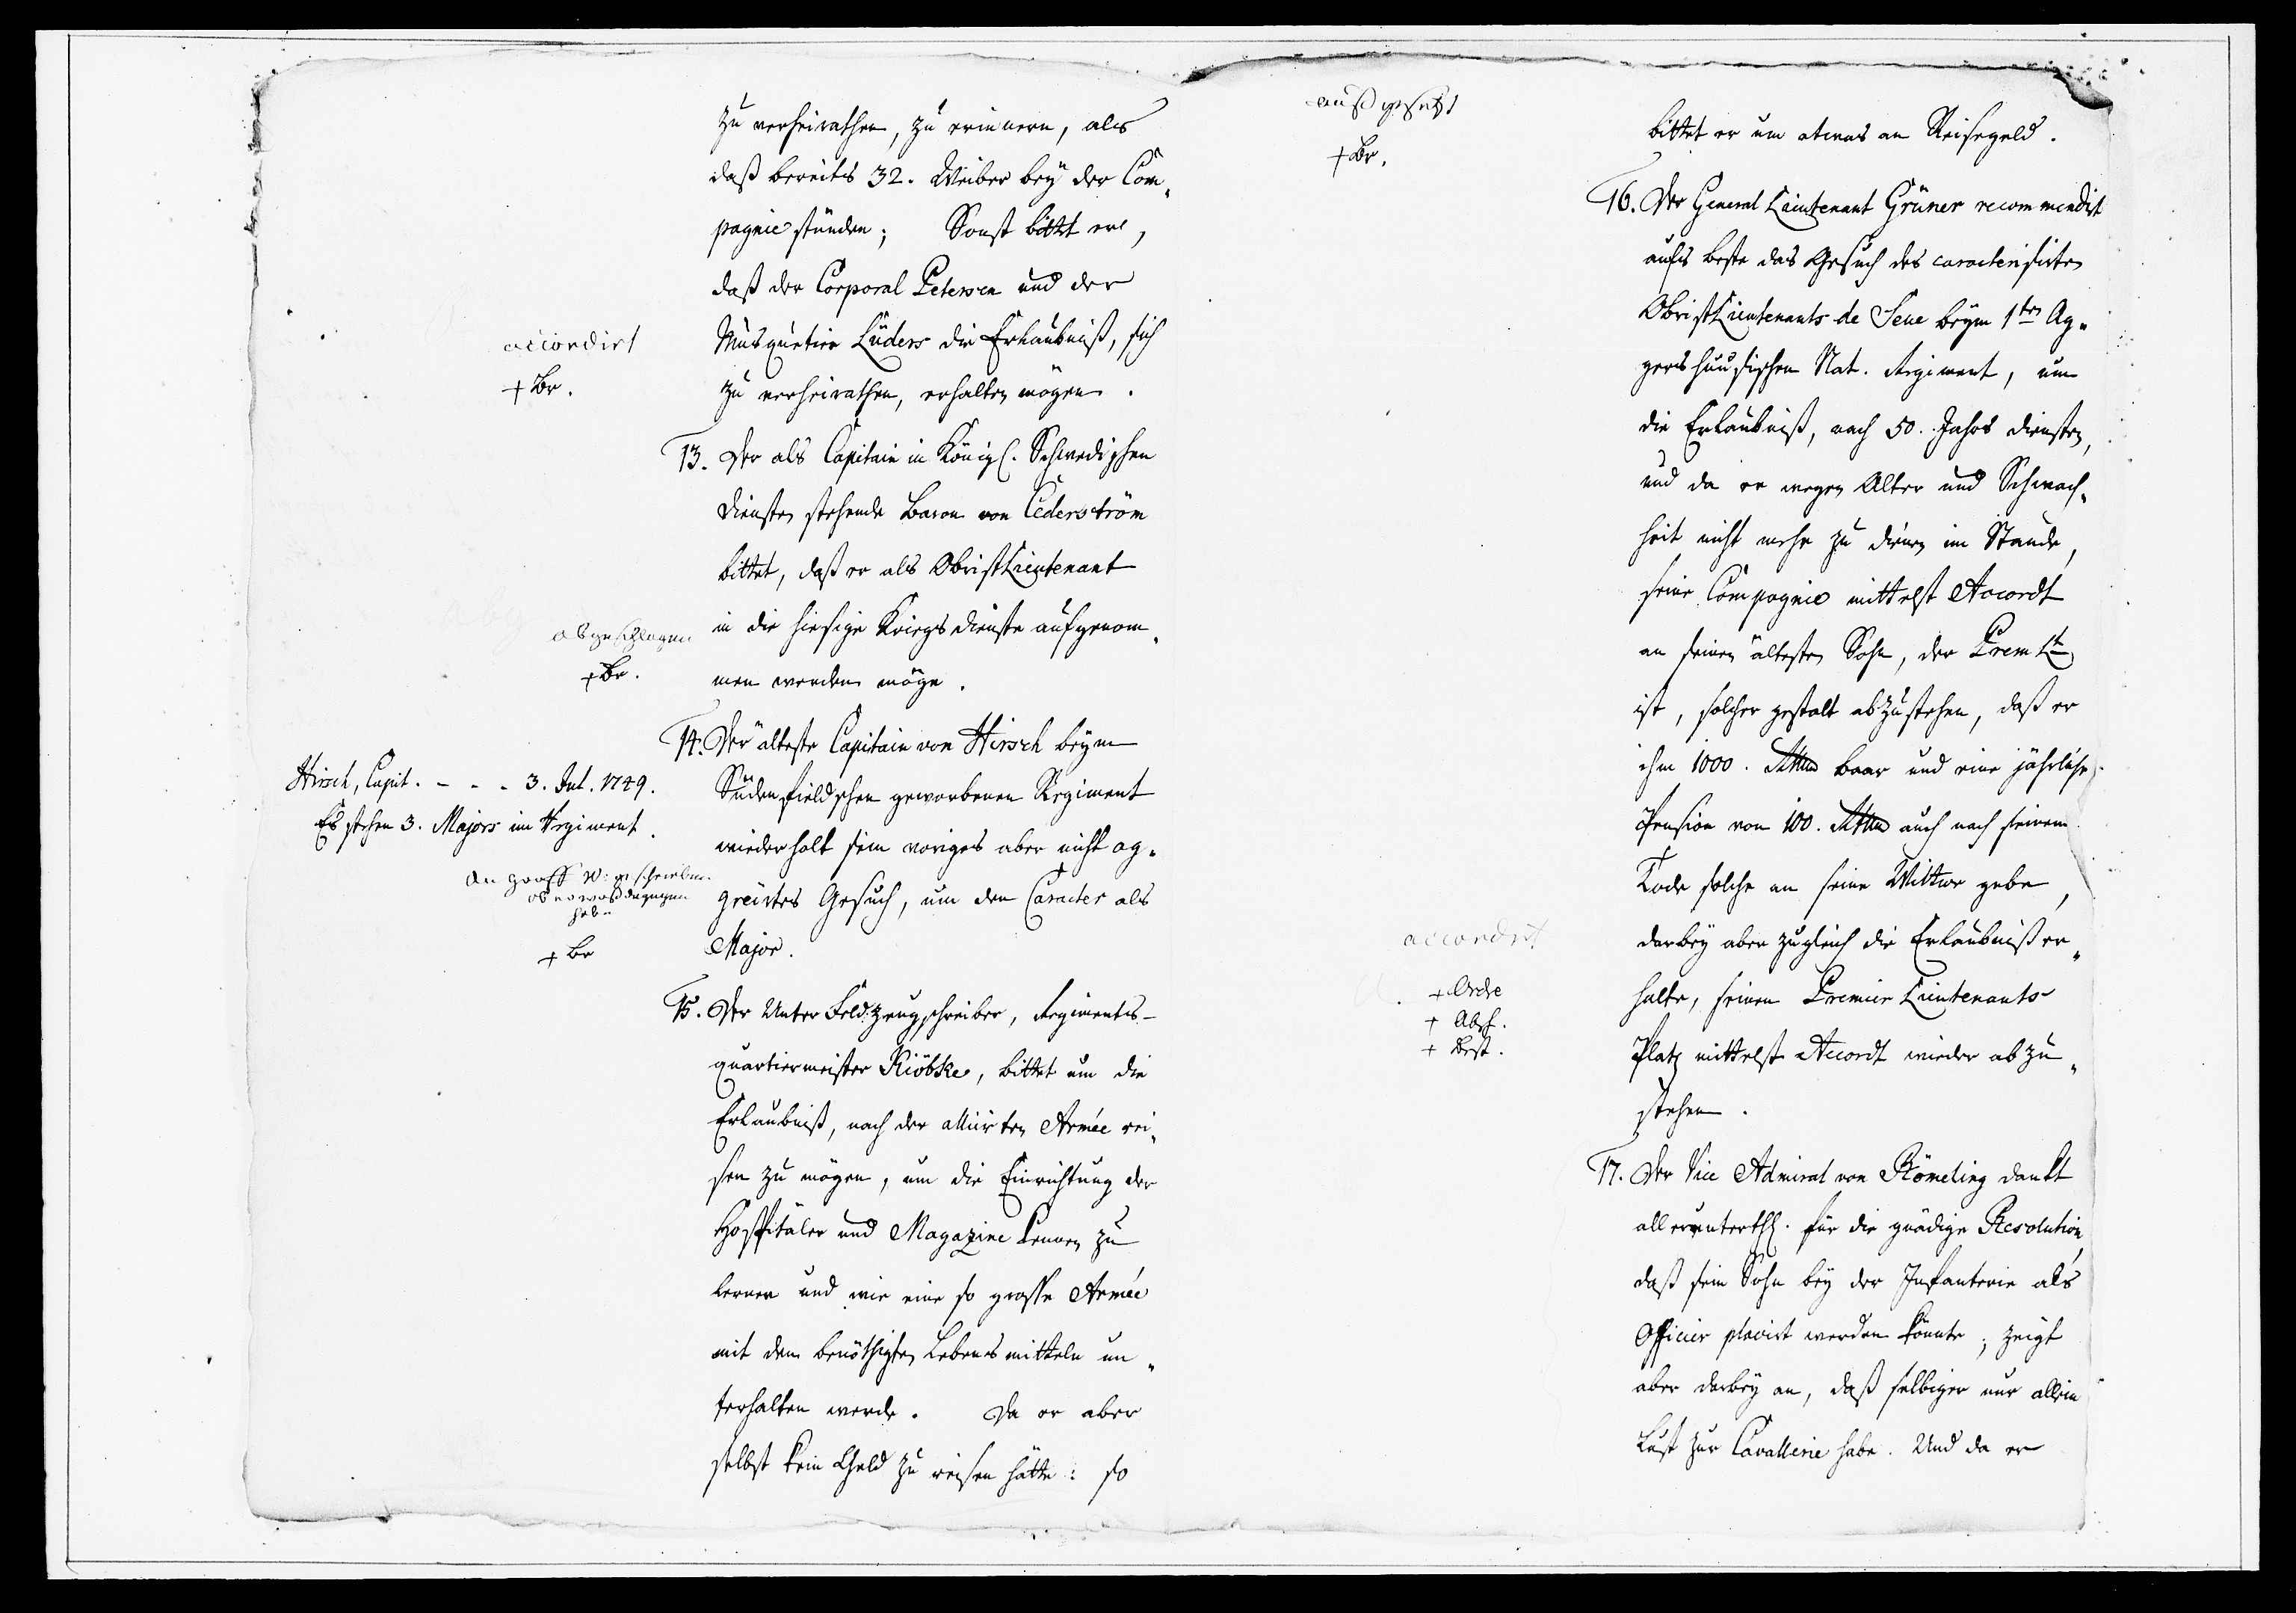 zu verheirathen, zu erinnern, als
daß bereits 32. Weiber bey der Com„
pagnie stünden; Sonst bittet er,
daß der Corporal Petersen und der
Musquetier Lüders die Erlaubniß, sich
zu verheirathen, erhalten mögen.
accordirt
+ Br.
13. Der als Capitain in Königl. Schwedischen
Diensten stehende Baron von Cederström
bittet, daß er als ObristLieutenant
in die hiesige Kriegsdienste aufgenom„
men werden möge.
abgeschlagen
+ Br.
14. Der älteste Capitain von Hirsch beym
Südenfieldschen geworbenen Regiment
wiederholt sein voriges aber nicht ag„
greirtes Gesuch, um den Caracter als
Major.
Hirsch, Capit. - - - 3. Jul. 1749.
Es stehen 3. Majors im Regiment.
An graff W: geschrieben
ob er was dagegen
habe
+ Br
15. Der Unter Feldzeugschreiber, Regiments-
quartiermeister Kiöbke, bittet um die
Erlaubniß, nach der alliirten Armée rei„
sen zu mögen, um die Einrichtung der
Hospitäler und Magazine kennen zu
lernen und wie eine so grosse Armée
mit den benöthigten Lebensmitteln un„
terhalten werde. Da er aber
selbst kein Geld zu reisen hätte: so
bittet er um etwas an Reisegeld.
auß gesetzt
+ Br.
16. Der General Lieutenant Grüner recommendirt
aufs beste das Gesuch des caracterisirten
ObristLieutenants de Seue beym 1ten Ag„
gershuusischen Nat. Regiment, um
die Erlaubniß, nach 50. Jahrs Diensten,
und da er wegen Alter und Schwach„
heit nicht mehr zu dienen im Stande,
seine Compagnie mittelst Accordt
an seinen ältesten Sohn, der Prem Lt
ist, solcher gestalt abzustehen, daß er
ihm 1000. Rthlr baar und eine jährliche
Pension von 100. Rthlr auch nach seinem
Tode solche an seine Wittwe gebe,
darbey aber zugleich die Erlaubniß er„
halte, seinen Premier Lieutenants
Platz mittelst Accordt wieder abzu„
stehen.
accordirt
+ Ordre
+ Absch.
+ Best.
17. Der Vice Admiral von Römeling dankt
allerunterth. für die gnädige Resolution,
daß sein Sohn bey der Infanterie als
Officier placirt werden könnte; zeigt
aber darbey an, daß selbiger nur allein
Lust zur Cavallerie habe. Und da er